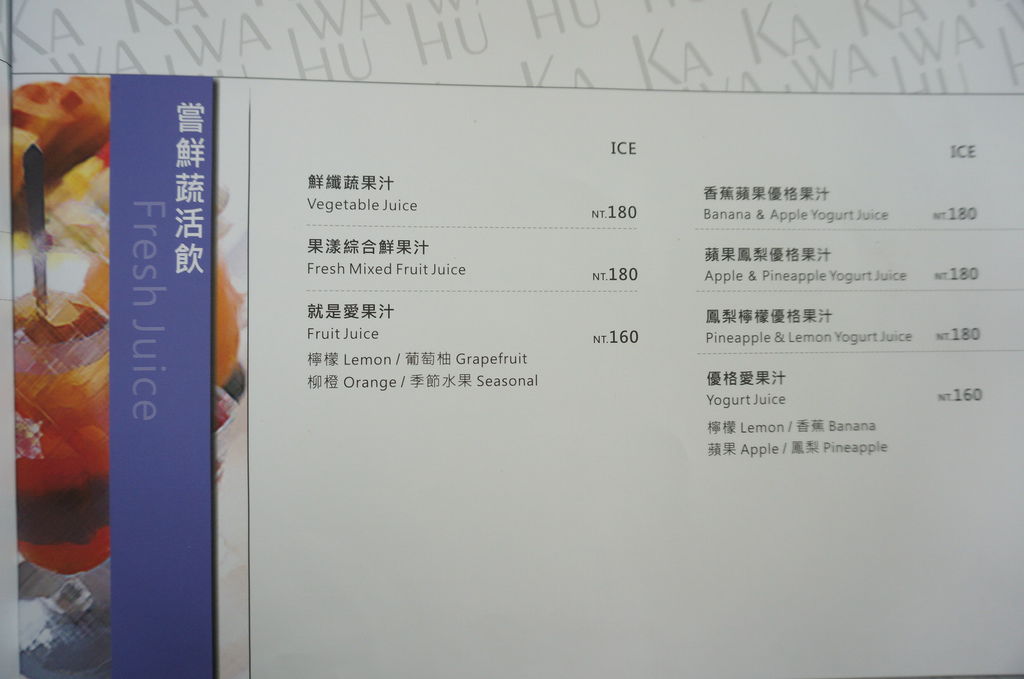 KA KA WA HU HU KA KA
WA WA HU KA WA WA HU
嘗鮮蔬活飲
Fresh Juice
ICE
鮮纖蔬果汁
Vegetable Juice NT.180
果漾綜合鮮果汁
Fresh Mixed Fruit Juice NT.180
就是愛果汁
Fruit Juice NT.160
檸檬 Lemon / 葡萄柚 Grapefruit
柳橙 Orange / 季節水果 Seasonal
ICE
香蕉蘋果優格果汁
Banana & Apple Yogurt Juice NT.180
蘋果鳳梨優格果汁
Apple & Pineapple Yogurt Juice NT.180
鳳梨檸檬優格果汁
Pineapple & Lemon Yogurt Juice NT.180
優格愛果汁
Yogurt Juice NT.160
檸檬 Lemon / 香蕉 Banana
蘋果 Apple / 鳳梨 Pineapple